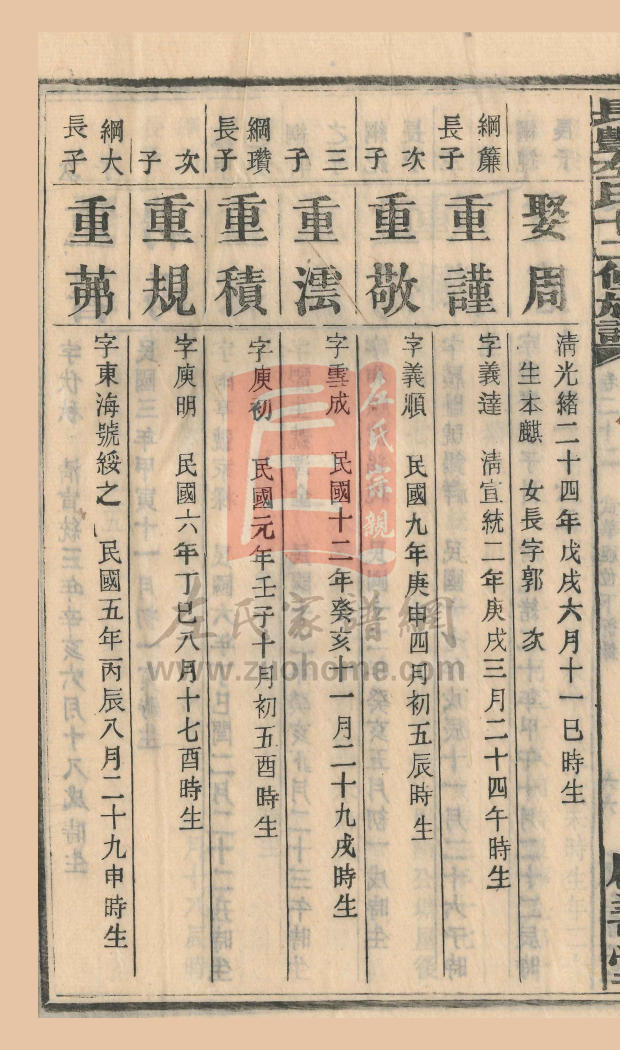 娶周
清光緒二十四年戊戌六月十一巳時生
生本麒　女長字郭　次
綱簾長子
重謹
字義達　清宣統二年庚戌三月二十四午時生
次子
重敬
字義順　民國九年庚申四月初五辰時生
之三子
重澐
字雲成　民國十二年癸亥十一月二十九戌時生
綱瓚長子
重積
字庚初　民國元年壬子十月初五酉時生
次子
重規
字庚明　民國六年丁巳八月十七酉時生
綱大長子
重茀
字東海號綏之　民國五年丙辰八月二十九申時生
左氏家譜網
www.zuohome.com